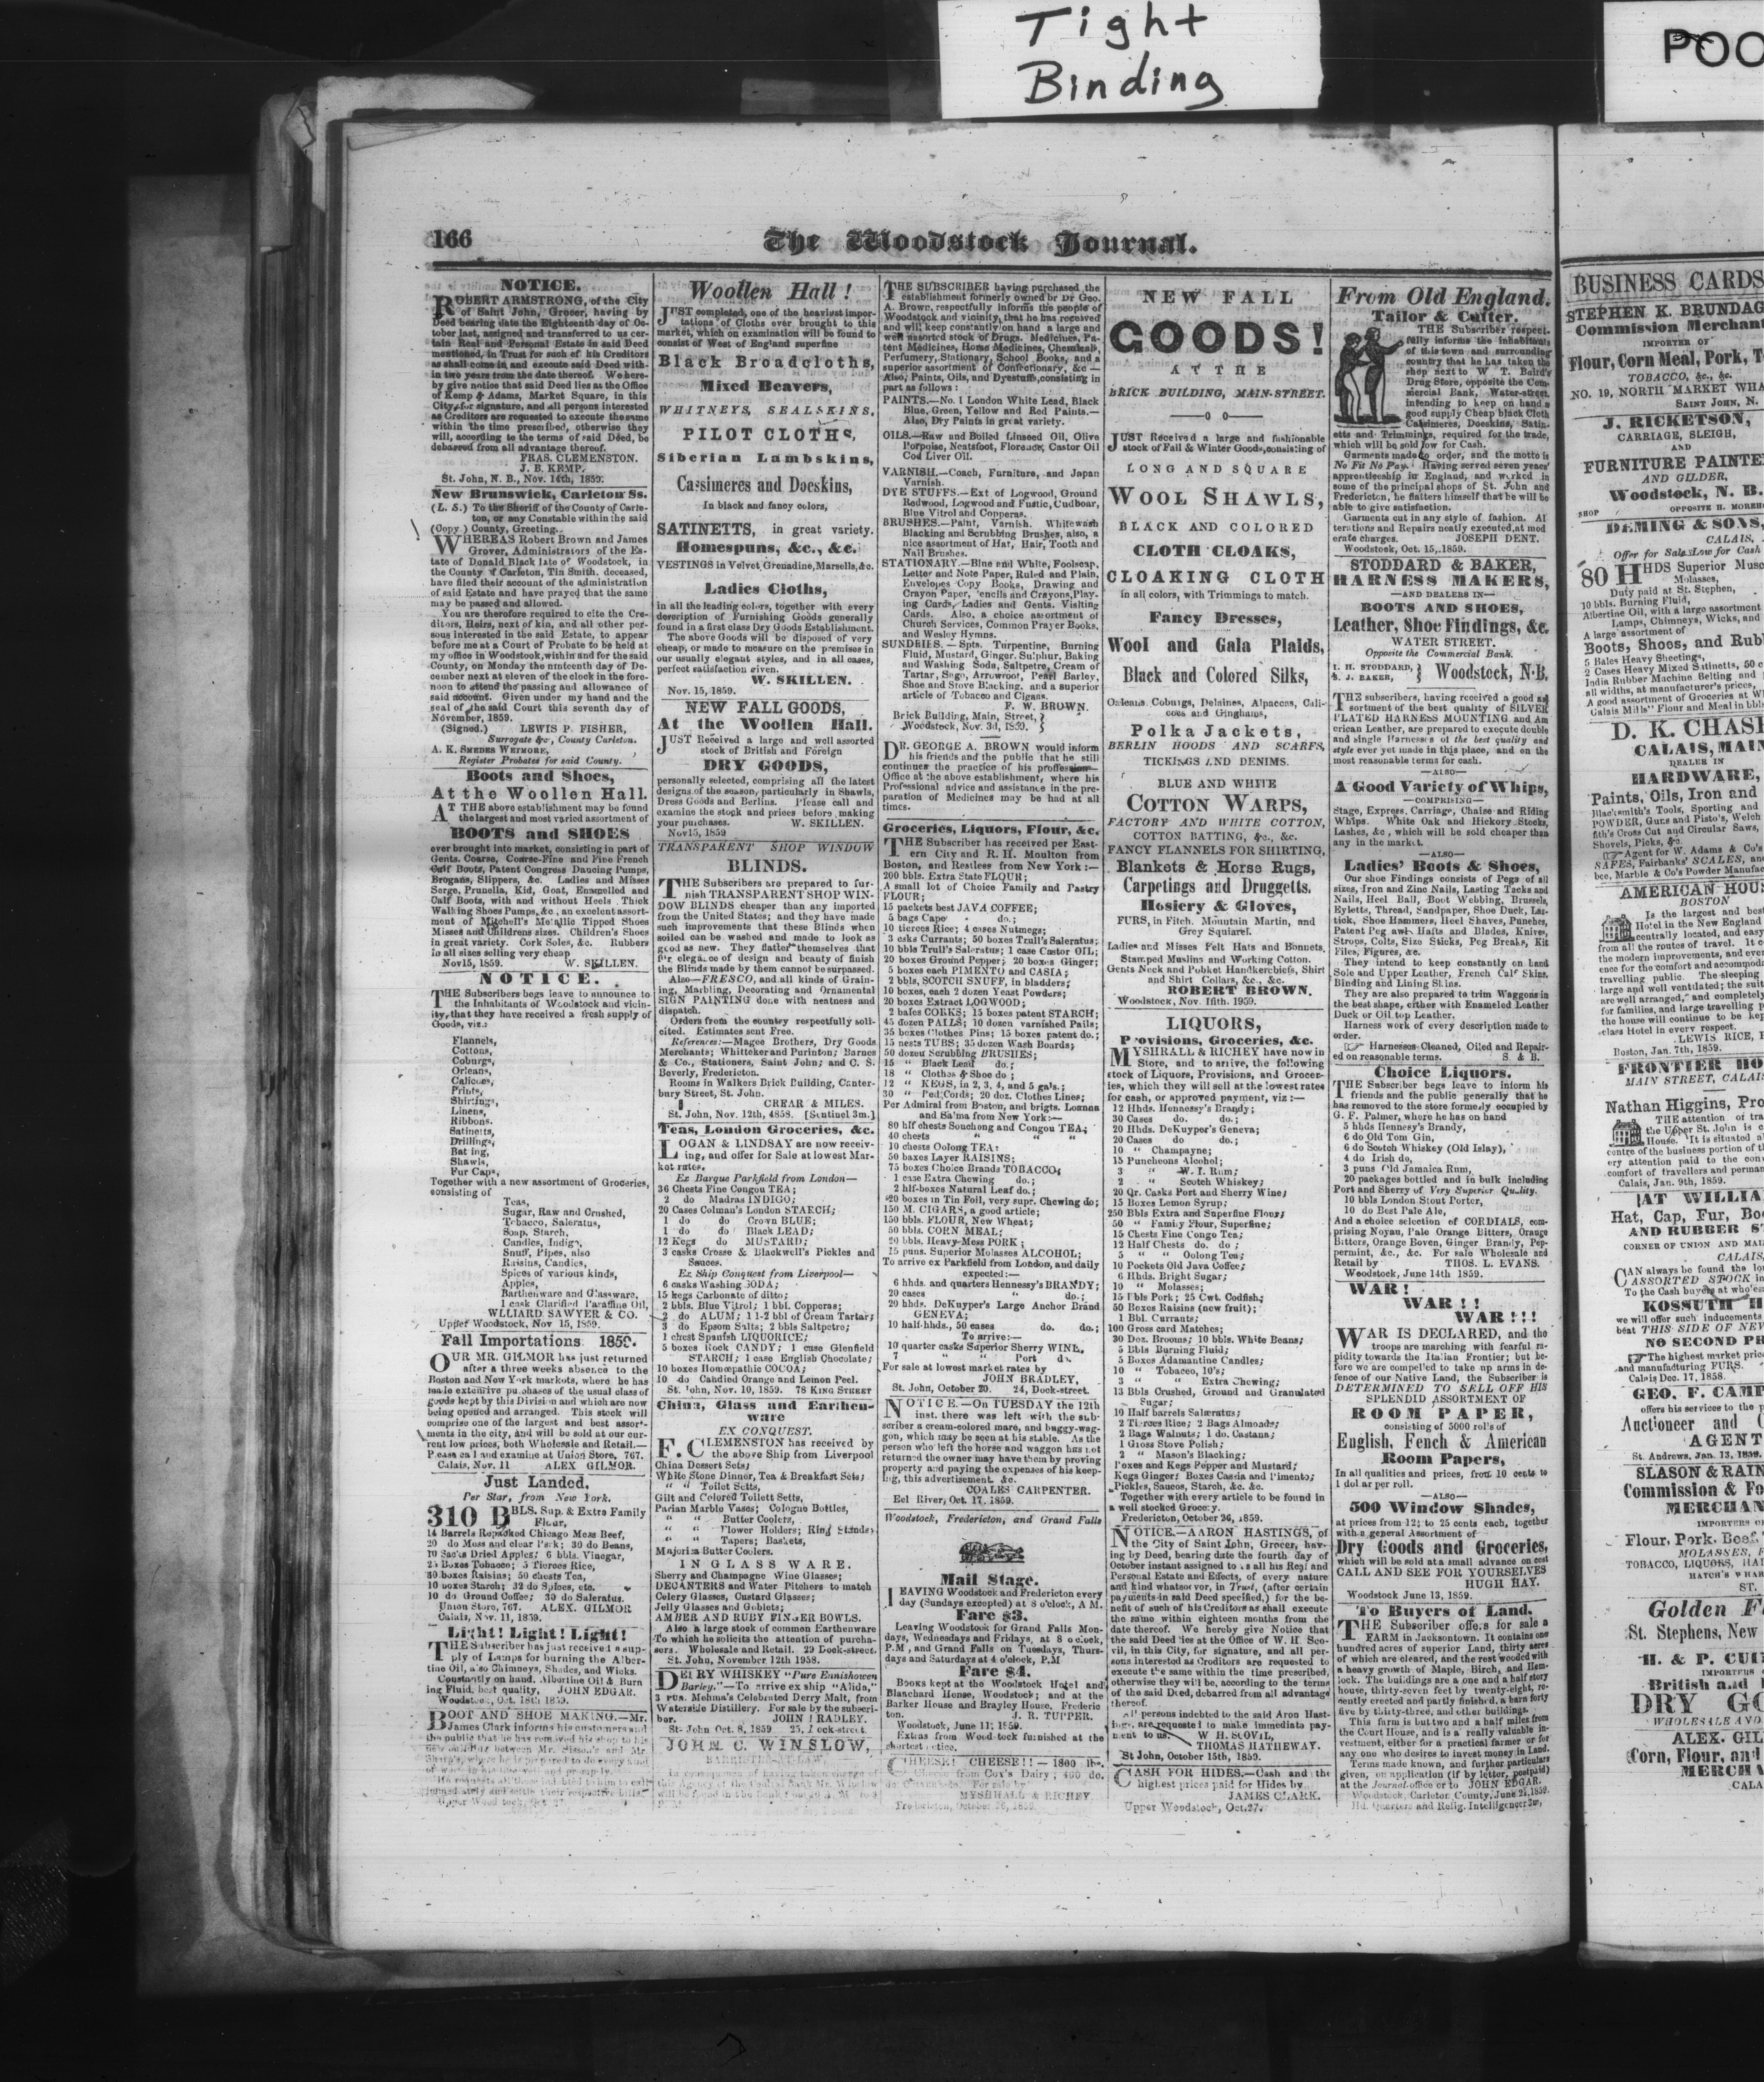 Tight
Binding
POO
166
The Woodstock Journal.
NOTICE.
ROBERT ARMSTRONG, of the City
of Saint John, Grocer, having by
Deed bearing date the Eighteenth day of Oc-
tober last, assigned and transferred to us cer-
tain Real and Personal Estate in said Deed
mentioned, in Trust for such of his Creditors
as shall come in and execute said Deed with-
in two years from the date thereof. We here-
by give notice that said Deed lies at the Office
of Kemp & Adams, Market Square, in this
City, for signature, and all persons interested
as Creditors are requested to execute the same
within the time prescribed, otherwise they
will, according to the terms of said Deed, be
debarred from all advantage thereof.
FRAS. CLEMENSTON.
J. B. KEMP.
St. John, N. B., Nov. 14th, 1859.
New Brunswick, Carleton Ss.
(L. S.) To the Sheriff of the County of Carle-
ton, or any Constable within the said
(Copy.) County, Greeting.
WHEREAS Robert Brown and James
Grover, Administrators of the Es-
tate of Donald Black late of Woodstock, in
the County of Carleton, Tin Smith, deceased,
have filed their account of the administration
of said Estate and have prayed that the same
may be passed and allowed.
You are therefore required to cite the Cre-
ditors, Heirs, next of kin, and all other per-
sons interested in the said Estate, to appear
before me at a Court of Probate to be held at
my office in Woodstock, within and for the said
County, on Monday the ninteenth day of De-
cember next at eleven of the clock in the fore-
noon to attend the passing and allowance of
said account. Given under my hand and the
seal of the said Court this seventh day of
November, 1859.
(Signed.) LEWIS P. FISHER,
Surrogate &c, County Carleton.
A. K. SMEDES WETMORE,
Register Probates for said County.
Boots and Shoes,
At the Woollen Hall.
AT THE above establishment may be found
the largest and most varied assortment of
BOOTS and SHOES
ever brought into market, consisting in part of
Gents. Coarse, Coarse-Fine and Fine French
Calf Boots, Patent Congress Dancing Pumps,
Brogans, Slippers, &c. Ladies and Misses
Serge, Prunella, Kid, Goat, Enamelled and
Calf Boots, with and without Heels. Thick
Walking Shoes Pumps, &c., an excellent assort-
ment of Mitchell's Metallic Tipped Shoes
Misses and Childrens sizes. Children's Shoes
in great variety. Cork Soles, &c. Rubbers
in all sizes selling very cheap
Nov 15, 1859. W. SKILLEN.
NOTICE.
THE Subscribers begs leave to announce to
the Inhabitants of Woodstock and vicin-
ity, that they have received a fresh supply of
Goods, viz:
Flannels,
Cottons,
Coburgs,
Orleans,
Calicoes,
Prints,
Shirtings,
Linens,
Ribbons.
Satinetts,
Drillings,
Bat ing,
Shawls,
Fur Caps,
Together with a new assortment of Groceries,
consisting of
Teas,
Sugar, Raw and Crushed,
Tobacco, Saleratus,
Soap, Starch,
Candles, Indigo,
Snuff, Pipes, also
Raisins, Candies,
Spices of various kinds,
Apples,
Earthenware and Glassware,
1 cask Clarified Paraffine Oil,
WLLIARD SAWYER & CO.
Upper Woodstock, Nov 15, 1859.
Fall Importations 1859.
OUR MR. GILMOR has just returned
after a three weeks absence to the
Boston and New York markets, where he has
made extensive purchases of the usual class of
goods kept by this Division and which are now
being opened and arranged. This stock will
comprise one of the largest and best assort-
ments in the city, and will be sold at our cur-
rent low prices, both Wholesale and Retail.—
Please call and examine at Union Store, 767.
Calais, Nov. 11 ALEX GILMOR.
Just Landed,
Per Star, from New York.
310 BBLS. Sup. & Extra Family
Flour,
14 Barrels Repacked Chicago Mess Beef,
20 do Mess and clear Pork; 30 do Beans,
10 Sacks Dried Apples; 6 bbls. Vinegar,
25 Boxes Tobacco; 5 Tierces Rice,
30 boxes Raisins; 50 chests Tea,
10 boxes Starch; 32 do Spices, etc.
10 do Ground Coffee; 30 do Saleratus.
Union Store, 767. ALEX. GILMOR
Calais, Nov. 11, 1859.
Light! Light! Light!
THE Subscriber has just received a sup-
ply of Lamps for burning the Alber-
tine Oil, also Chimneys, Shades, and Wicks.
Constantly on hand, Albertine Oil & Burn
ing Fluid, best quality, JOHN EDGAR.
Woodstock, Oct. 18th 1859.
BOOT AND SHOE MAKING.—Mr.
James Clark informs his customers and
the public that he has removed his shop to his
new building between Mr. Sisson's and Mr
Woollen Hall!
JUST completed, one of the heaviest impor-
tations of Cloths ever brought to this
market, which on examination will be found to
consist of West of England superfine
Black Broadcloths,
Mixed Beavers,
WHITNEYS, SEALSKINS,
PILOT CLOTHS,
Siberian Lambskins,
Cassimeres and Doeskins,
In black and fancy colors,
SATINETTS, in great variety.
Homespuns, &c., &c.
VESTINGS in Velvet, Grenadine, Marsells, &c.
Ladies Cloths,
in all the leading colors, together with every
description of Furnishing Goods generally
found in a first class Dry Goods Establishment.
The above Goods will be disposed of very
cheap, or made to measure on the premises in
our usually elegant styles, and in all cases,
perfect satisfaction given.
W. SKILLEN.
Nov. 15, 1859.
NEW FALL GOODS,
At the Woollen Hall.
JUST Received a large and well assorted
stock of British and Foreign
DRY GOODS,
personally selected, comprising all the latest
designs of the season, particularly in Shawls,
Dress Goods and Berlins. Please call and
examine the stock and prices before making
your purchases. W. SKILLEN.
Nov 15, 1859
TRANSPARENT SHOP WINDOW
BLINDS.
THE Subscribers are prepared to fur-
nish TRANSPARENT SHOP WIN-
DOW BLINDS cheaper than any imported
from the United States; and they have made
such improvements that these Blinds when
soiled can be washed and made to look as
good as new. They flatter themselves that
for elegance of design and beauty of finish
the Blinds made by them cannot be surpassed.
Also—FRESCO, and all kinds of Grain-
ing, Marbling, Decorating and Ornamental
SIGN PAINTING done with neatness and
dispatch.
Orders from the country respectfully soli-
cited. Estimates sent Free.
References:—Magee Brothers, Dry Goods
Merchants; Whitteker and Purinton; Barnes
& Co., Stationers, Saint John; and C. S.
Beverly, Fredericton.
Rooms in Walkers Brick Building, Canter-
bury Street, St. John.
CREAR & MILES.
St. John, Nov. 12th, 4858. [Sentinel 3m.]
Teas, London Groceries, &c.
LOGAN & LINDSAY are now receiv-
ing, and offer for Sale at lowest Mar-
ket rates,
Ex Barque Parkfield from London—
36 Chests Fine Congou TEA;
2 do Madras INDIGO;
20 Cases Colman's London STARCH;
1 do do Crown BLUE;
1 do do Black LEAD;
12 Kegs do MUSTARD;
3 casks Crosse & Blackwell's Pickles and
Sauces.
Ex Ship Conquest from Liverpool—
6 casks Washing SODA;
15 kegs Carbonate of ditto;
2 bbls. Blue Vitrol; 1 bbl. Copperas;
2 do ALUM; 1 1-2 bbl of Cream Tartar;
3 do Epsom Salts; 2 bbls Saltpetre;
1 chest Spanish LIQUORICE;
5 boxes Rock CANDY; 1 case Glenfield
STARCH; 1 case English Chocolate;
10 boxes Homœpathic COCOA;
10 do Candied Orange and Lemon Peel.
St. John, Nov. 10, 1859. 78 KING STREET
China, Glass and Earthen-
ware
EX CONQUEST.
F. CLEMENSTON has received by
the above Ship from Liverpool
China Dessert Sets;
White Stone Dinner, Tea & Breakfast Sets;
" " Toilet Setts,
Gilt and Colored Toilett Setts,
Parian Marble Vases; Cologne Bottles,
" " Butter Coolers,
" " Flower Holders; Ring Stands;
" " Tapers; Baskets,
Majorica Butter Coolers.
IN GLASS WARE.
Sherry and Champagne Wine Glasses;
DECANTERS and Water Pitchers to match
Celery Glasses, Custard Glasses;
Jelly Glasses and Goblets;
AMBER AND RUBY FINGER BOWLS.
Also a large stock of common Earthenware
To which he solicits the attention of purcha-
sers. Wholesale and Retail. 29 Dock-street.
St. John, November 12th 1958.
DERRY WHISKEY "Pure Ennishowen
Barley."—To arrive ex ship "Alida,"
3 pun. Mehma's Celebrated Derry Malt, from
Waterside Distillery. For sale by the subscri-
ber. JOHN BRADLEY.
St- John Oct. 8, 1859 25, Dock-street.
JOHN C. WINSLOW,
BARRISTER-AT-LAW,
THE SUBSCRIBER having purchased the
establishment formerly owned by Dr Geo.
A. Brown, respectfully informs the people of
Woodstock and vicinity, that he has received
and will keep constantly on hand a large and
well assorted stock of Drugs. Medicines, Pa-
tent Medicines, Horse Medicines, Chemicals,
Perfumery, Stationary, School Books, and a
superior assortment of Confectionary, &c—
Also, Paints, Oils, and Dyestuffs, consisting in
part as follows:
PAINTS.—No. 1 London White Lead, Black
Blue, Green, Yellow and Red Paints.—
Also, Dry Paints in great variety.
OILS.—Raw and Boiled Linseed Oil, Olive
Porpoise, Neatsfoot, Florence, Castor Oil
Cod Liver Oil.
VARNISH.—Coach, Furniture, and Japan
Varnish.
DYE STUFFS.—Ext of Logwood, Ground
Redwood, Logwood and Fustic, Cudboar,
Blue Vitrol and Copperas.
BRUSHES.—Paint, Varnish. Whitewash
Blacking and Scrubbing Brushes, also, a
nice assortment of Hat, Hair, Tooth and
Nail Brushes.
STATIONARY.—Blue and White, Foolscap,
Letter and Note Paper, Ruled and Plain,
Envelopes Copy Books, Drawing and
Crayon Paper, Pencils and Crayons, Play-
ing Cards, Ladies and Gents. Visiting
Cards. Also, a choice assortment of
Church Services, Common Prayer Books,
and Wesley Hymns.
SUNDRIES.—Spts. Turpentine, Burning
Fluid, Mustard, Ginger, Sulphur, Baking
and Washing Soda, Saltpetre, Cream of
Tartar, Sago, Arrowroot, Pearl Barley,
Shoe and Stove Blacking, and a superior
article of Tobacco and Cigars.
F. W. BROWN.
Brick Building, Main, Street,
Woodstock, Nov. 3d, 1859.
DR. GEORGE A. BROWN would inform
his friends and the public that he still
continues the practice of his profession—
Office at the above establishment, where his
Professional advice and assistance in the pre-
paration of Medicines may be had at all
times.
Groceries, Liquors, Flour, &c.
THE Subscriber has received per East-
ern City and R. H. Moulton from
Boston, and Restless from New York:—
200 bbls. Extra State FLOUR;
A small lot of Choice Family and Pastry
FLOUR;
15 packets best JAVA COFFEE;
5 bags Cape do.;
10 tierces Rice; 4 cases Nutmegs;
3 csks Currants; 50 boxes Trull's Saleratus;
10 bbls Trull's Saleratus; 1 case Castor OIL;
20 boxes Ground Pepper; 20 boxes Ginger;
5 boxes each PIMENTO and CASIA;
2 bbls, SCOTCH SNUFF, in bladders;
10 boxes, each 2 dozen Yeast Powders;
20 boxes Extract LOGWOOD;
2 bales CORKS; 15 boxes patent STARCH;
45 dozen PAILS; 10 dozen varnished Pails;
35 boxes Clothes Pins; 15 boxes patent do.;
15 nests TUBS; 35 dozen Wash Boards;
50 dozen Scrubbing BRUSHES;
15 " Black Lead do.;
18 " Clothes & Shoe do;
12 " KEGS, in 2, 3, 4, and 5 gals.;
30 " Ped Cords; 20 doz. Clothes Lines;
Per Admiral from Boston, and brigts. Loanna
and Salma from New York:—
80 hlf chests Souchong and Congou TEA;
40 chests " "
10 chests Oolong TEA;
50 boxes Layer RAISINS;
75 boxes Choice Brands TOBACCO;
1 case Extra Chewing do.;
2 hlf-boxes Natural Leaf do.;
20 boxes in Tin Foil, very supr. Chewing do;
150 M. CIGARS, a good article;
150 bbls. FLOUR, New Wheat;
50 bbls. CORN MEAL;
20 bbls. Heavy Mess PORK;
15 puns. Superior Molasses ALCOHOL;
To arrive ex Parkfield from London, and daily
expected:—
6 hhds. and quarters Hennessy's BRANDY;
20 cases " do.;
20 hhds. DeKuyper's Large Anchor Brand
GENEVA;
10 half-hhds., 50 cases do. do.;
To arrive:—
10 quarter casks Superior Sherry WINE,
7 " " Port do.
For sale at lowest market rates by
JOHN BRADLEY,
St. John, October 20. 24, Dock-street.
NOTICE.—On TUESDAY the 12th
inst. there was left with the sub-
scriber a cream-colored mare, and buggy-wag-
gon, which may be seen at his stable. As the
person who left the horse and waggon has not
returned the owner may have them by proving
property and paying the expenses of his keep-
ing, this advertisement &c.
COALES CARPENTER.
Eel River, Oct. 17. 1859.
Woodstock, Fredericton, and Grand Falls
Mail Stage.
LEAVING Woodstock and Fredericton every
day (Sundays excepted) at 8 o'clock, A M.
Fare $3.
Leaving Woodstock for Grand Falls Mon-
days, Wednesdays and Fridays, at 8 o'clock,
P.M, and Grand Falls on Tuesdays, Thurs-
days and Saturdays at 4 o'clock, P.M
Fare $4.
BOOKS kept at the Woodstock Hotel and
Blanchard House, Woodstock; and at the
Barker House and Brayley House, Frederic
ton. J. R. TUPPER.
Woodstock, June 11; 1859.
Extras from Woodstock furnished at the
shortest notice.
CHEESE! CHEESE!!—1800 lbs.
Cheese from Cox's Dairy; 400 do.
MYSHRALL & RICHEY
Fredericton, October 26, 1859.
NEW FALL
GOODS!
AT THE
BRICK BUILDING, MAIN-STREET.
——o o——
JUST Received a large and fashionable
stock of Fall & Winter Goods, consisting of
LONG AND SQUARE
WOOL SHAWLS,
BLACK AND COLORED
CLOTH CLOAKS,
CLOAKING CLOTH
in all colors, with Trimmings to match.
Fancy Dresses,
Wool and Gala Plaids,
Black and Colored Silks,
Orleans Coburgs, Delaines, Alpaccas, Cali-
coes and Ginghams,
Polka Jackets,
BERLIN HOODS AND SCARFS,
TICKINGS AND DENIMS.
BLUE AND WHITE
COTTON WARPS,
FACTORY AND WHITE COTTON,
COTTON BATTING, &c., &c.
FANCY FLANNELS FOR SHIRTING,
Blankets & Horse Rugs,
Carpetings and Druggetts.
Hosiery & Gloves,
FURS, in Fitch. Mountain Martin, and
Grey Squirrel.
Ladies and Misses Felt Hats and Bonnets,
Stamped Muslins and Working Cotton.
Gents Neck and Pobket Handkerchiefs, Shirt
and Shirt Collars, &c., &c.
ROBERT BROWN.
Woodstock, Nov. fifth. 1959.
LIQUORS,
Provisions, Groceries, &c.
MYSHRALL & RICHEY have now in
Store, and to arrive, the following
stock of Liquors, Provisions, and Grocer-
ies, which they will sell at the lowest rates
for cash, or approved payment, viz:—
12 Hhds. Hennessy's Brandy;
30 Cases do. do.;
20 Hhds. DeKuyper's Geneva;
20 Cases do do.;
10 " Champayne;
15 Puncheons Alcohol;
3 " W. I. Rum;
2 " Scotch Whiskey;
20 Qr. Casks Port and Sherry Wine;
15 Boxes Lemon Syrup;
250 Bbls Extra and Superfine Flour;
50 " Family Flour, Superfine;
15 Chests Fine Congo Tea;
12 Half Chests do. do;
5 " " Oolong Tea;
10 Pockets Old Java Coffee;
6 Hhds. Bright Sugar;
15 " Molasses;
15 Bbls Pork; 25 Cwt. Codfish;
50 Boxes Raisins (new fruit);
1 Bbl. Currants;
100 Gross card Matches;
30 Doz. Brooms; 10 bbls. White Beans;
5 Bbls Burning Fluid;
5 Boxes Adamantine Candles;
10 " Tobacco, 10's;
3 " Extra Chewing;
13 Bbls Crushed, Ground and Granulated
Sugar;
10 Half barrels Saleratus;
2 Tierces Rice; 2 Bags Almonds;
2 Bags Walnuts; 1 do. Castana;
1 Gross Stove Polish;
2 " Mason's Blacking;
Boxes and Kegs Pepper and Mustard;
Kegs Ginger; Boxes Cassia and Pimento;
Pickles, Sauces, Starch, &c. &c.
Together with every article to be found in
a well stocked Grocery.
Fredericton, October 26, 1859.
NOTICE.—AARON HASTINGS, of
the City of Saint John, Grocer, hav-
ing by Deed, bearing date the fourth day of
October instant assigned to us all his Real and
Personal Estate and Effects, of every nature
and kind whatsoever, in Trust, (after certain
payments in said Deed specified,) for the be-
nefit of such of his Creditors as shall execute
the same within eighteen months from the
date thereof. We hereby give Notice that
the said Deed lies at the Office of W. H. Sco-
vil, in this City, for signature, and all per-
sons interested as Creditors are requested to
execute the same within the time prescribed,
otherwise they will be, according to the terms
of the said Deed, debarred from all advantage
thereof.
All persons indebted to the said Aron Hast-
ings, are requested to make immediate pay-
ment to us. W. H. SCOVIL,
THOMAS HATHEWAY.
St John, October 15th, 1859.
CASH FOR HIDES.—Cash and the
highest prices paid for Hides by
JAMES CLARK.
Upper Woodstock, Oct. 27.
From Old England.
Tailor & Cutter.
THE Subscriber respect-
fully informs the inhabitants
of this town and surrounding
country that he has taken the
shop next to W T. Baird's
Drug Store, opposite the Com-
mercial Bank, Water-street,
intending to keep on hand a
good supply Cheap black Cloth
Cassimeres, Doeskins, Satin-
etts and Trimmings, required for the trade,
which will be sold low for Cash.
Garments made to order, and the motto is
No Fit No Pay. Having served seven years'
apprenticeship in England, and worked in
some of the principal shops of St. John and
Fredericton, he flatters himself that he will be
able to give satisfaction.
Garments cut in any style of fashion. Al
terations and Repairs neatly executed, at mod
erate charges. JOSEPH DENT.
Woodstock, Oct. 15, 1859.
STODDARD & BAKER,
HARNESS MAKERS,
—AND DEALERS IN—
BOOTS AND SHOES,
Leather, Shoe Findings, &c.
WATER STREET.
Opposite the Commercial Bank.
I. H. STODDARD,
J. BAKER, Woodstock, N.B.
THE subscribers, having received a good as
sortment of the best quality of SILVER
PLATED HARNESS MOUNTING and Am
erican Leather, are prepared to execute double
and single Harnesses of the best quality and
style ever yet made in this place, and on the
most reasonable terms for cash.
—ALSO—
A Good Variety of Whips,
—COMPRISING—
Stage, Express, Carriage, Chaise and Riding
Whips. White Oak and Hickory Stocks,
Lashes, &c, which will be sold cheaper than
any in the market.
—ALSO—
Ladies' Boots & Shoes,
Our shoe Findings consists of Pegs of all
sizes, Iron and Zinc Nails, Lasting Tacks and
Nails, Heel Ball, Boot Webbing, Brussels,
Eyletts, Thread, Sandpaper, Shoe Duck, Las-
tick, Shoe Hammers, Heel Shaves, Punches,
Patent Peg awl Hafts and Blades, Knives,
Strops, Colts, Size Sticks, Peg Breaks, Kit
Files, Figures, &c.
They intend to keep constantly on hand
Sole and Upper Leather, French Calf Skins,
Binding and Lining Skins.
They are also prepared to trim Waggons in
the best shape, either with Enameled Leather
Duck or Oil top Leather.
Harness work of every description made to
order.
Harnesses Cleaned, Oiled and Repair-
ed on reasonable terms. S. & B.
Choice Liquors.
THE Subscriber begs leave to inform his
friends and the public generally that he
has removed to the store formerly occupied by
G. F. Palmer, where he has on hand
5 hhds Hennesy's Brandy,
6 do Old Tom Gin,
6 do Scotch Whiskey (Old Islay),
4 do Irish do,
3 puns Old Jamaica Rum,
20 packages bottled and in bulk including
Port and Sherry of Very Superior Quality.
10 bbls London Stout Porter,
10 do Best Pale Ale,
And a choice selection of CORDIALS, com-
prising Noyau, Pale Orange Bitters, Orange
Bitters, Orange Boven, Ginger Brandy, Pep-
permint, &c., &c. For sale Wholesale and
Retail by THOS. L. EVANS.
Woodstock, June 14th 1859.
WAR!
WAR!!
WAR!!!
WAR IS DECLARED, and the
troops are marching with fearful ra-
pidity towards the Italian Frontier; but be-
fore we are compelled to take up arms in de-
fence of our Native Land, the Subscriber is
DETERMINED TO SELL OFF HIS
SPLENDID ASSORTMENT OF
ROOM PAPER,
consisting of 5000 rolls of
English, Fench & American
Room Papers,
In all qualities and prices, from 10 cents to
1 dollar per roll.
—ALSO—
500 Window Shades,
at prices from 12½ to 25 cents each, together
with a general Assortment of
Dry Goods and Groceries,
which will be sold at a small advance on cost
CALL AND SEE FOR YOURSELVES
HUGH HAY.
Woodstock June 13, 1859.
To Buyers of Land.
THE Subscriber offers for sale a
FARM in Jacksontown. It contains one
hundred acres of superior Land, thirty acres
of which are cleared, and the rest wooded with
a heavy growth of Maple, Birch, and Hem-
lock. The buildings are a one and a half story
house, thirty-seven feet by twenty-eight, re-
cently erected and partly finished, a barn forty
five by thirty-three, and other buildings.
This farm is but two and a half miles from
the Court House, and is a really valuable in-
vestment, either for a practical farmer or for
any one who desires to invest money in Land.
Terms made known, and further particulars
given, on application (if by letter, postpaid)
at the Journal office or to JOHN EDGAR.
Woodstock, Carleton County, June 21, 1859.
Hd. Quarters and Relig. Intelligencer 3m,
BUSINESS CARDS
STEPHEN K. BRUNDAG
Commission Merchant
IMPORTER OF
Flour, Corn Meal, Pork, T
TOBACCO, &c., &c.
NO. 19, NORTH MARKET WHA
SAINT JOHN, N.
J. RICKETSON,
CARRIAGE, SLEIGH,
AND
FURNITURE PAINTE
AND GILDER,
Woodstock, N. B.
SHOP OPPOSITE H. MOREH
DEMING & SONS,
CALAIS,
Offer for Sale Low for Cash
80 HHDS Superior Musc
Molasses,
Duty paid at St. Stephen,
10 bbls. Burning Fluid,
Albertine Oil, with a large assortment
Lamps, Chimneys, Wicks, and
A large assortment of
Boots, Shoes, and Rub
5 Bales Heavy Sheetings,
2 Cases Heavy Mixed Satinetts, 50 c
India Rubber Machine Belting and
all widths, at manufacturer's prices,
A good assortment of Groceries at W
Calais Mills" Flour and Meal in bbls
D. K. CHASE
CALAIS, MAIN
DEALER IN
HARDWARE,
Paints, Oils, Iron and
Blacksmith's Tools, Sporting and
POWDER, Guns and Pistols, Welch
Cross Cut and Circular Saws,
Shovels, Picks, &c.
Agent for W. Adams & Co's
SAFES, Fairbanks' SCALES, an
bee, Marble & Co's Powder Manufac
AMERICAN HOUS
BOSTON
Is the largest and best
Hotel in the New England
centrally located, and easy
from all the routes of travel. It c
the modern improvements, and ever
ence for the comfort and accommod
travelling public. The sleeping
large and well ventilated; the suit
are well arranged, and completely
for families, and large travelling p
the house will continue to be kep
class Hotel in every respect.
LEWIS RICE, P
Boston, Jan. 7th, 1859.
FRONTIER HO
MAIN STREET, CALAIS
Nathan Higgins, Pro
THE attention of tra
the Upper St. John is c
House. It is situated a
centre of the business portion of th
ery attention paid to the con
comfort of travellers and perman
Calais, Jan. 9th, 1859.
AT WILLIA
Hat, Cap, Fur, Boo
AND RUBBER ST
CORNER OF UNION AND MAI
CALAIS,
CAN always be found the lo
ASSORTED STOCK in
To the Cash buyers at whole
KOSSUTH H
we will offer such inducements
beat THIS SIDE OF NEV
NO SECOND PR
The highest market price
and manufacturing FURS.
Calais Dec. 17, 1858.
GEO. F. CAMP
offers his services to the p
Auctioneer and C
AGENT
St. Andrews, Jan. 13, 1859.
SLASON & RAIN
Commission & Fo
MERCHAN
IMPORTERS O
Flour, Pork, Beef,
MOLASSES, F
TOBACCO, LIQUORS, TEA
HATCH'S WHAR
ST.
Golden F
St. Stephens, New
H. & P. CUL
IMPORTERS
British and
DRY GO
WHOLESALE AND
ALEX. GIL
Corn, Flour, and
MERCHA
CALA